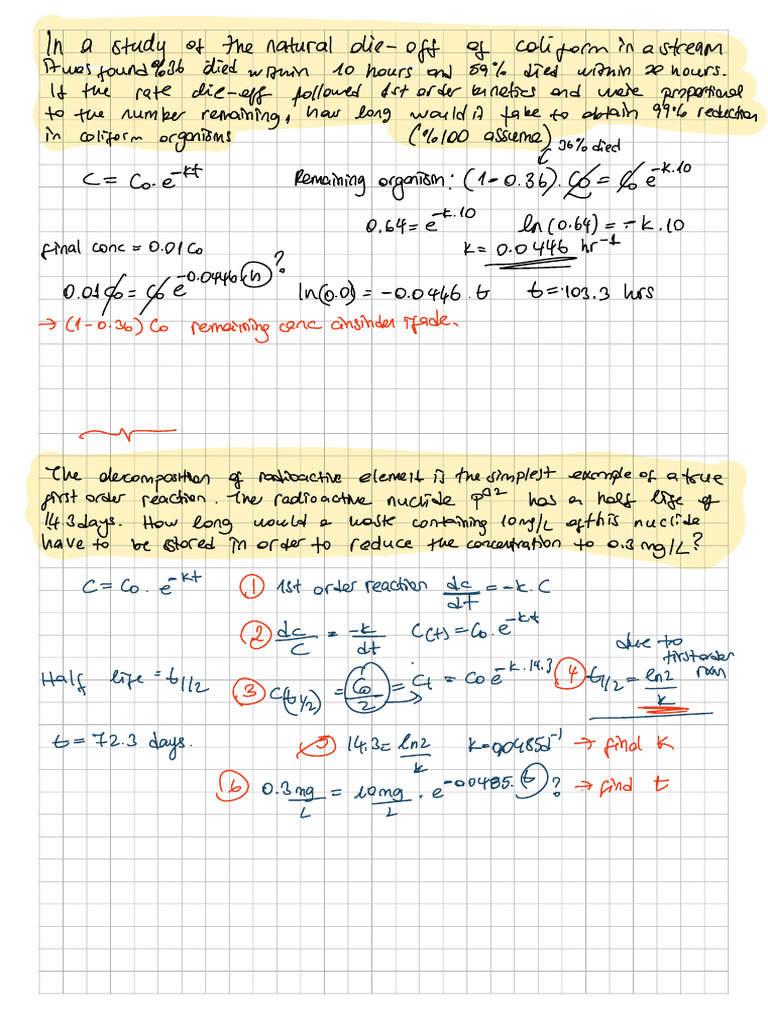 In a study of the natural die-off of coliform in a stream
it was found %36 died within 10 hours and 59% died within 20 hours.
If the rate die-off followed 1st order kinetics and were proportional
to the number remaining, how long would it take to obtain 99% reduction
in coliform organisms (%100 assume)
36% died
C = Co.e^-kt Remaining organism: (1-0.36).Co = Co e^-k.10
0.64 = e^-k.10 ln(0.64) = -k.10
final conc = 0.01 Co k = 0.0446 hr^-1
0.01 Co = Co e^-0.0446(h) ? ln(0.0) = -0.0446.t t = 103.3 hrs
→ (1-0.36) Co remaining conc cinsinden ifade.
The decomposition of radioactive element is the simplest example of a true
first order reaction. The radioactive nuclide P^32 has a half life of
14.3 days. How long would a waste containing 10mg/L of this nuclide
have to be stored in order to reduce the concentration to 0.3 mg/L?
C = Co . e^-kt ① 1st order reaction dc/dt = -k.C
② dc/C = -k/dt C(t) = Co.e^-kt
due to
first order
rxn
Half life = t1/2 ③ C(t1/2) = Co/2 = Ct = Co e^-k.14.3 ④ t1/2 = ln2/k
t = 72.3 days. 5 14.3 = ln2/k k=0.0485d^-1 → find k
⑥ 0.3 mg/L = 10 mg/L . e^-0.0485.(t) ? → find t